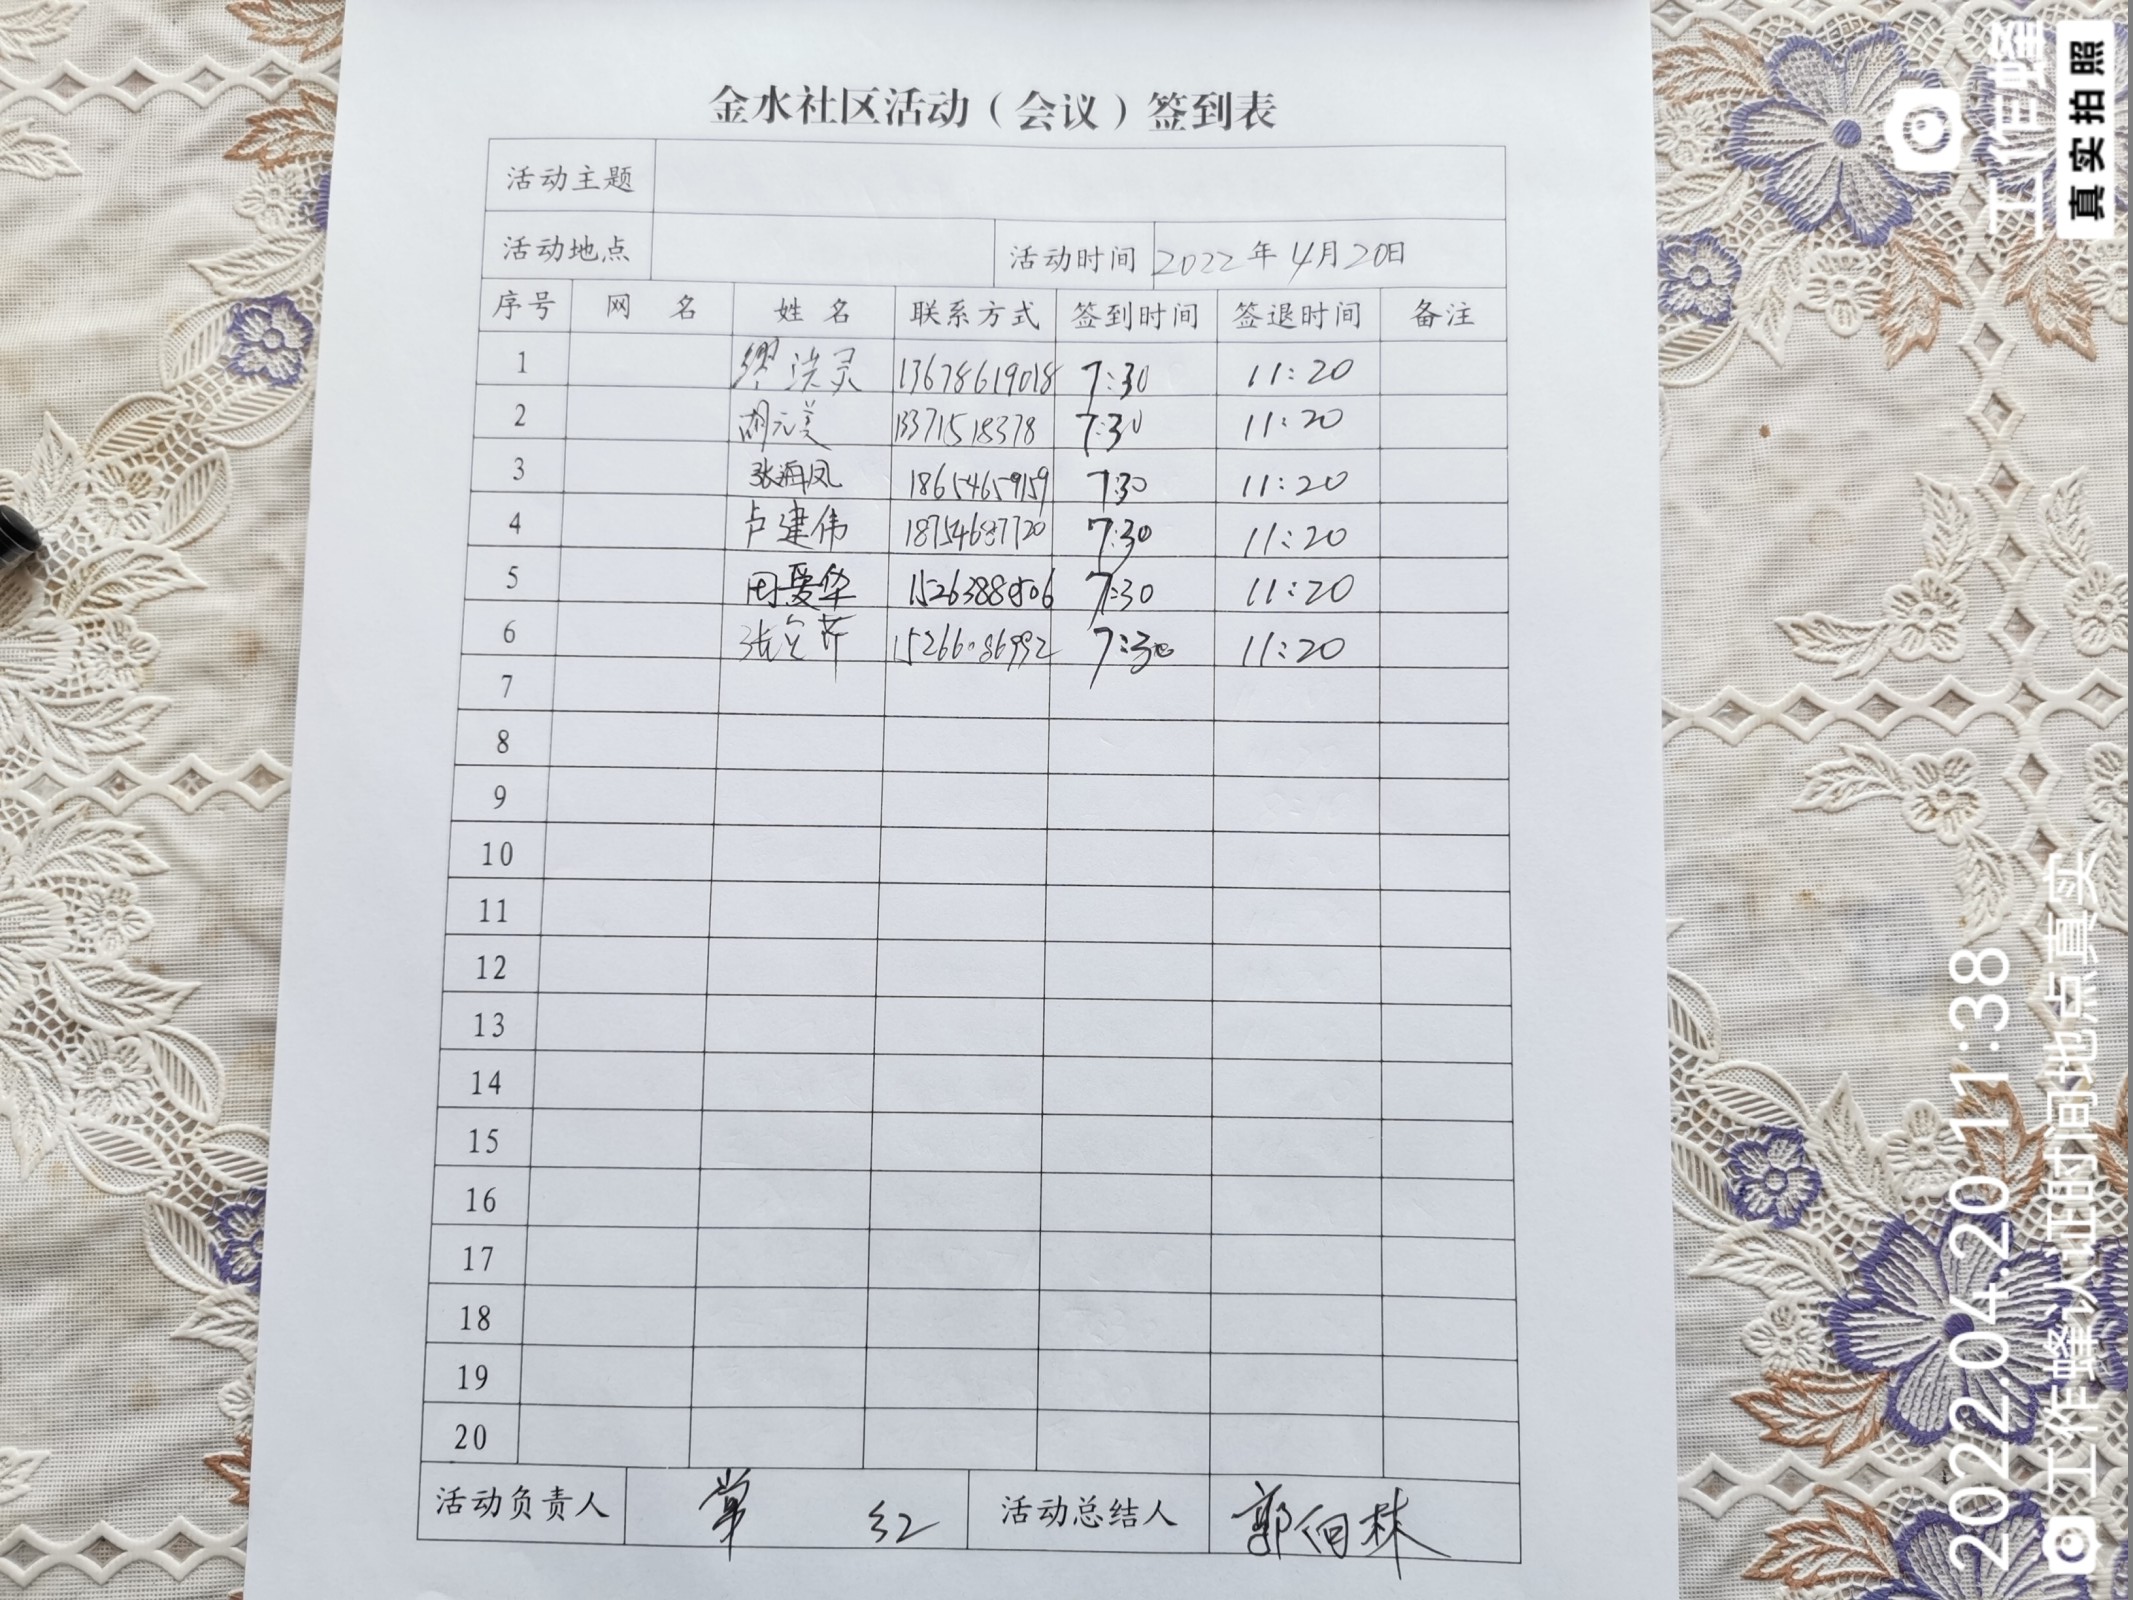 金水社区活动（会议）签到表
活动主题
活动地点 活动时间 2022年4月20日
序号 网名 姓名 联系方式 签到时间 签退时间 备注
1 13678619018 7:30 11:20
2 胡元美 13371518378 7:30 11:20
3 张海凤 18654659159 7:30 11:20
4 卢建伟 18754687720 7:30 11:20
5 田爱华 15263880506 7:30 11:20
6 15266086992 7:30 11:20
7
8
9
10
11
12
13
14
15
16
17
18
19
20
活动负责人 常红 活动总结人 郭向林
工作蜂
真实拍照
2022.04.20 11:38
工作蜂认证时间地点真实